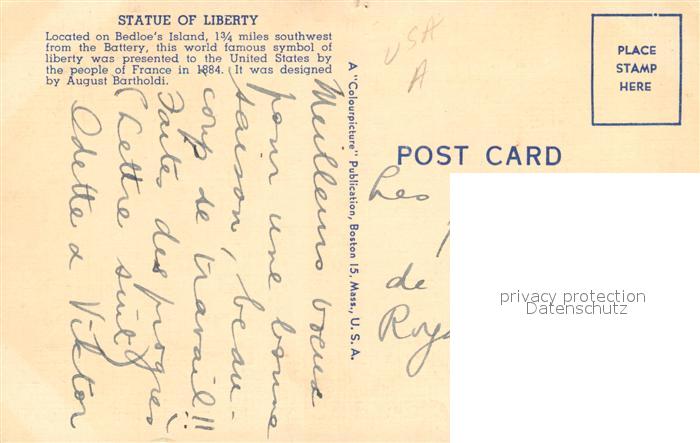 STATUE OF LIBERTY
Located on Bedloe's Island, 1¾ miles southwest
from the Battery, this world famous symbol of
liberty was presented to the United States by
the people of France in 1884. It was designed
by August Bartholdi.
Meilleurs voeux
pour une bonne
saison, beau-
coup de travail!!
Faites des progrès!
Lettre suit
Odette & Viktor
A "Colourpicture" Publication, Boston 15, Mass., U. S. A.
USA
A
PLACE
STAMP
HERE
POST CARD
Les
de
privacy protection
Datenschutz